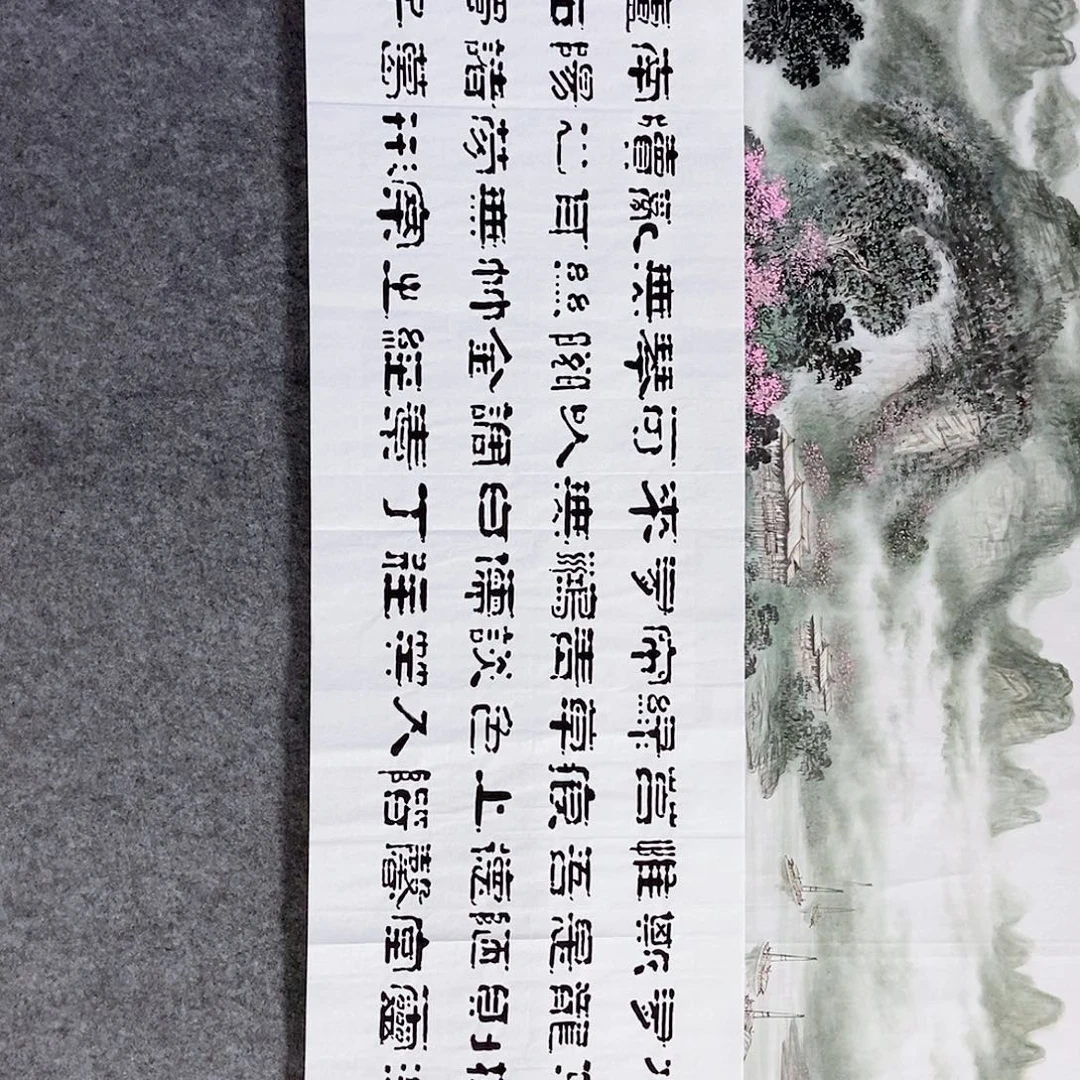 有龍則靈
斯是陋室
惟吾德馨
苔痕上階
綠草色入
簾青談笑
有鴻儒往
來無白丁
可以調素
琴閱金經
無絲竹之
亂耳無案
牘之勞形
南陽諸葛
廬西蜀子